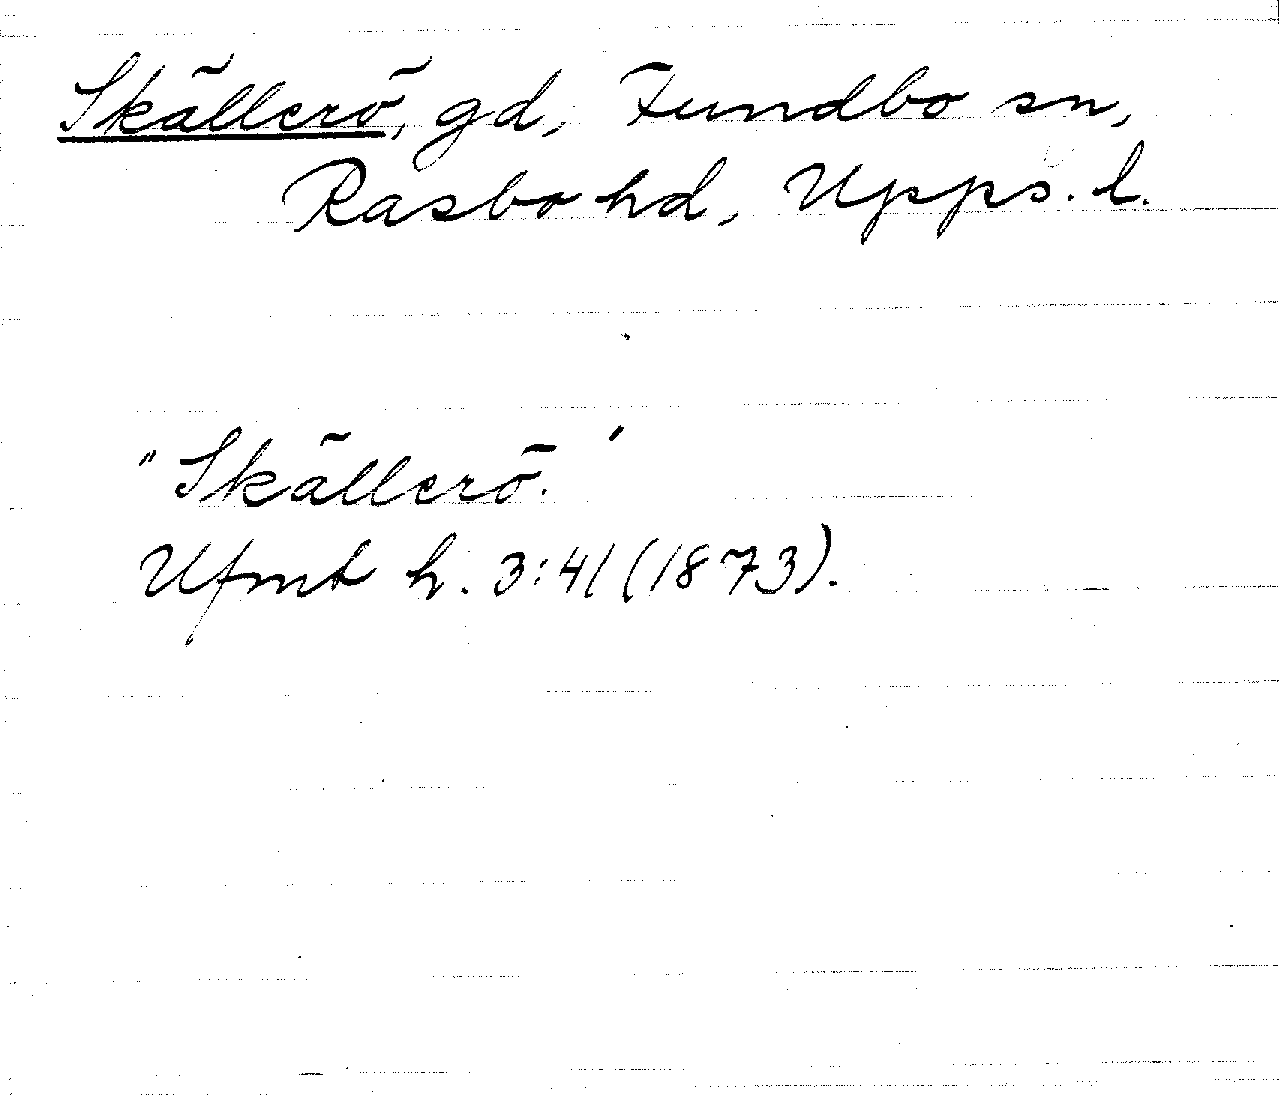 Skällerö, gd, Funbo sn,
Rasbo hd, Upps. l.
"Skällerö."
Ufmt h. 3:41 (1873).